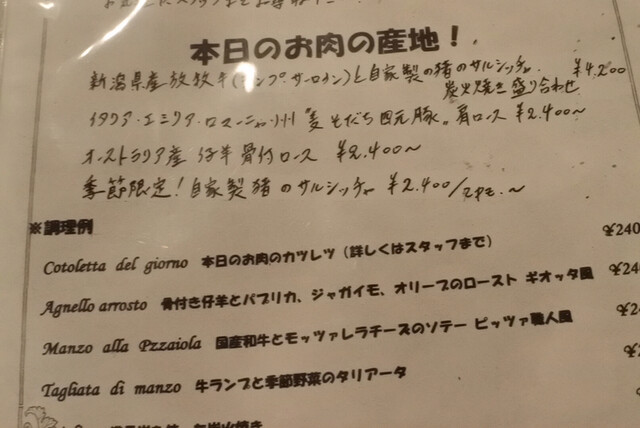 本日のお肉の産地！
新潟県産放牧牛(ランプ・サーロイン)と自家製の猪のサルシッチャ ¥4,200
炭火焼き盛り合わせ
イタリア・エミリア・ロマーニャ州 麦そだち四元豚。肩ロース ¥2.400〜
オーストラリア産 仔羊骨付ロース ¥2,400〜
季節限定！自家製猪のサルシッチャ ¥2.400/2P〜
※調理例
Cotoletta del giorno 本日のお肉のカツレツ（詳しくはスタッフまで） ¥240
Agnello arrosto 骨付き仔羊とパプリカ、ジャガイモ、オリーブのロースト ギオッタ風 ¥24
Manzo alla Pzzaiola 国産和牛とモッツァレラチーズのソテー ピッツァ職人風 ¥2
Tagliata di manzo 牛ランプと季節野菜のタリアータ